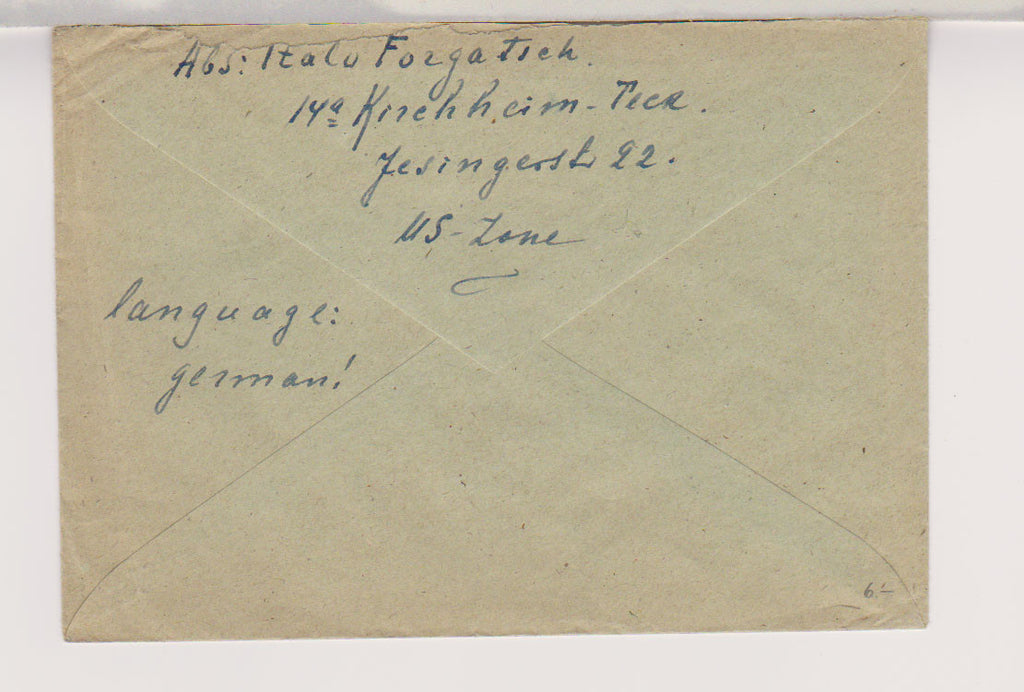 Abs: Italo Forgatsch.
14a Kirchheim-Teck.
Jesingerstr 22.
US-Zone
language:
german!
6.-